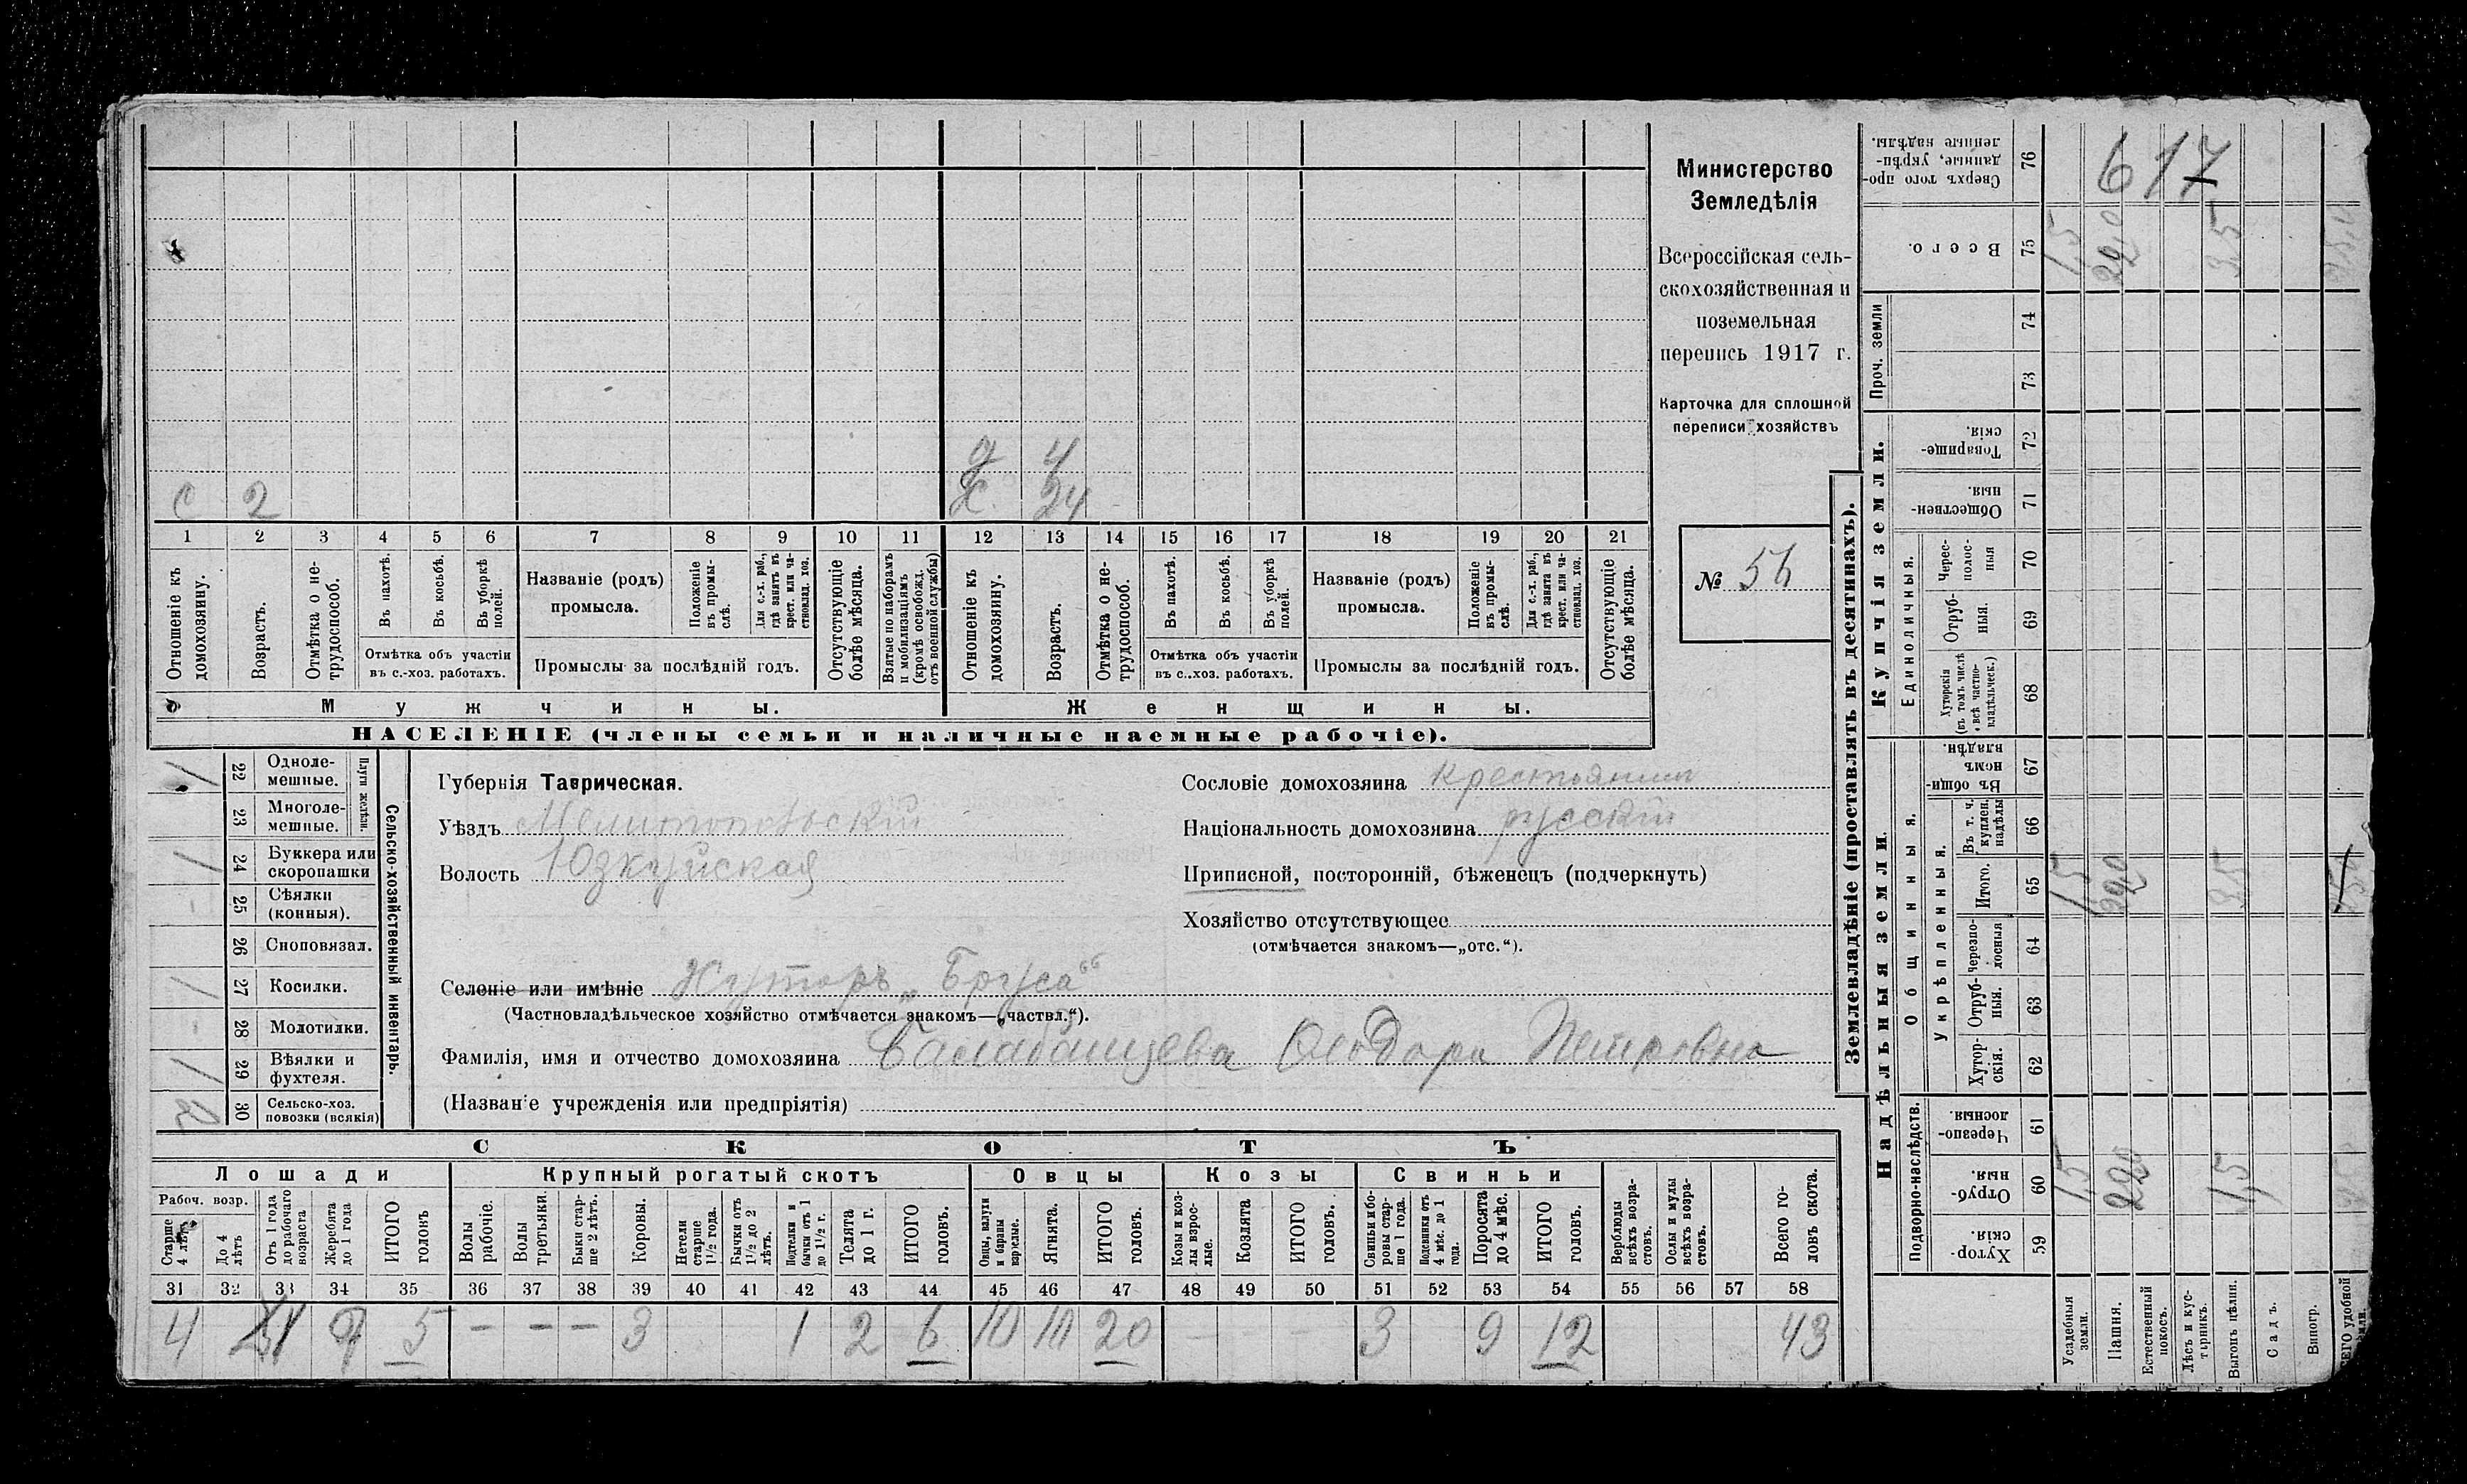 Министерство
Земледѣлія
Всероссійская сель-
скохозяйственная и
поземельная
перепись 1917 г.
Карточка для сплошной
переписи хозяйствъ
№ 56
с 2
д 4
ж 24
1 2 3 4 5 6 7 8 9 10 11 12 13 14 15 16 17 18 19 20 21
Отношеніе къ домохозяину.
Возрастъ.
Отмѣтка о не-трудоспособ.
Въ пахотѣ.
Въ косьбѣ.
Въ уборкѣ полей.
Отмѣтка объ участіи
въ с.-хоз. работахъ.
Названіе (родъ)
промысла.
Положеніе въ промы-слѣ.
Для с.-х. раб., гдѣ занятъ въ крест. или ча-стновлад. хоз.
Промыслы за послѣдній годъ.
Отсутствующіе болѣе мѣсяца.
Взятые по наборамъ и мобилизаціямъ (кромѣ освобожд. отъ военной службы)
Отношеніе къ домохозяину.
Возрастъ.
Отмѣтка о не-трудоспособ.
Въ пахотѣ.
Въ косьбѣ.
Въ уборкѣ полей.
Отмѣтка объ участіи
въ с.-хоз. работахъ.
Названіе (родъ)
промысла.
Положеніе въ промы-слѣ.
Для с.-х. раб., гдѣ занята въ крест. или ча-стновлад. хоз.
Промыслы за послѣдній годъ.
Отсутствующіе болѣе мѣсяца.
Мужчины.
Женщины.
НАСЕЛЕНІЕ (члены семьи и наличные наемные рабочіе).
Сельско-хозяйственный инвентарь.
Плуги желѣзн.
22 Одноле-мешные. 1
23 Многоле-мешные.
24 Буккера или скоропашки 1
25 Сѣялки (конныя).
26 Сноповязал.
27 Косилки. 1
28 Молотилки. -
29 Вѣялки и фухтеля. 1
30 Сельско-хоз. повозки (всякія)
Губернія Таврическая.
Уѣздъ Мелитопольскій
Волость Юзкуйская
Сословіе домохозяина крестьянинъ
Національность домохозяина русскій
Приписной, посторонній, бѣженецъ (подчеркнуть)
Хозяйство отсутствующее
(отмѣчается знакомъ—„отс.“).
Селеніе или имѣніе Хуторъ „Бруса“
(Частновладѣльческое хозяйство отмѣчается знакомъ—„частвл.“).
Фамилія, имя и отчество домохозяина Балабанцева Ѳеодора Петровна
(Названіе учрежденія или предпріятія)
СКОТЪ
Лошади
Крупный рогатый скотъ
Овцы
Козы
Свиньи
Рабоч. возр.
Старше 4 лѣтъ
До 4 лѣтъ
Отъ 1 года до рабочаго возраста
Жеребята до 1 года
ИТОГО головъ
Волы рабочіе.
Волы третьяки.
Быки стар-ше 2 лѣтъ.
Коровы.
Нетели старше 1½ года.
Бычки отъ 1½ до 2 лѣтъ.
Подтелки и бычки отъ 1 до 1½ г.
Телята до 1 г.
ИТОГО головъ.
Овцы, валухи и бараны взрослые.
Ягнята.
ИТОГО головъ.
Козы и коз-лы взрос-лые.
Козлята
ИТОГО головъ.
Свиньи и бо-ровы стар-ше 1 года.
Подсвинки отъ 4 мѣс. до 1 года.
Поросята до 4 мѣс.
ИТОГО головъ.
Верблюды всѣхъ возра-стовъ.
Ослы и мулы всѣхъ возра-стовъ.
Всего го-ловъ скота.
31 32 33 34 35 36 37 38 39 40 41 42 43 44 45 46 47 48 49 50 51 52 53 54 55 56 57 58
4 1 5 - - - 3 1 2 6 10 10 20 3 9 12 43
Землевладѣніе (проставлять въ десятинахъ).
617
76 Сверхъ того про-данные, укрѣп-ленные надѣлы.
75 Всего. 1,5 22,0
Проч. земли
74
73
Купчія земли.
72 Товарище-скія.
71 Обществен-ныя.
Единоличныя.
70 Черес-полос-ныя
69 Отруб-ныя.
68 Хуторскія (въ томъ числѣ и всѣ частно-владѣльческ.)
Надѣльныя земли.
Общинныя.
67 Въ общи-номъ владѣн.
Укрѣпленныя.
66 Въ т. ч. куплен. надѣлы
65 Итого. 1,5
64 Черезпо-лосныя
63 Отруб-ныя.
62 Хутор-скія.
Подворно-наслѣдств.
61 Черезпо-лосныя.
60 Отруб-ныя. 1,5 1,5
59 Хутор-скія.
Усадебныя земли.
Пашня.
Естественный покосъ.
Лѣсъ и кус-тарникъ.
Выгонъ цѣлин.
Садъ.
Виногр.